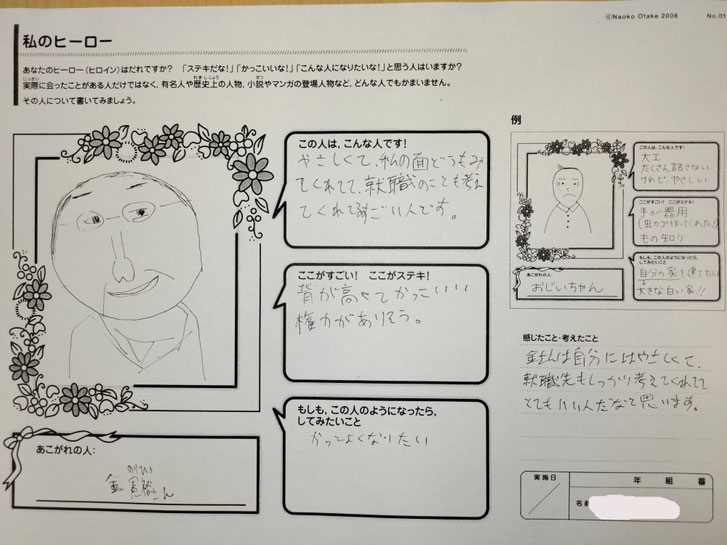 ©Naoko Otake 2008
No.01
私のヒーロー
あなたのヒーロー(ヒロイン)はだれですか? 「ステキだな!」「かっこいいな!」「こんな人になりたいな!」と思う人はいますか?
実際に会ったことがある人だけではなく、有名人や歴史上の人物、小説やマンガの登場人物など、どんな人でもかまいません。
その人について書いてみましょう。
この人は、こんな人です!
やさしくて、私の面どうもみ
てくれてて、就職のことも考え
てくれてすごい人です。
ここがすごい! ここがステキ!
背が高くてかっこいい
権力がありそう。
もしも、この人のようになったら、
してみたいこと
かっこよくなりたい
あこがれの人:
金 さん
例
この人は、こんな人です!
大工
たくさん話さない
けれど、やさしい
ここがすごい! ここがステキ!
手が器用
もの知り
もしも、この人のようになったら、
してみたいこと
自分の家を建てたい
大きな白い家!!
あこがれの人:
おじいちゃん
感じたこと・考えたこと
金さんは自分にはやさしくて、
就職先もしっかり考えてくれてて
とてもいい人だなと思います。
実施日
年 組 番
名前